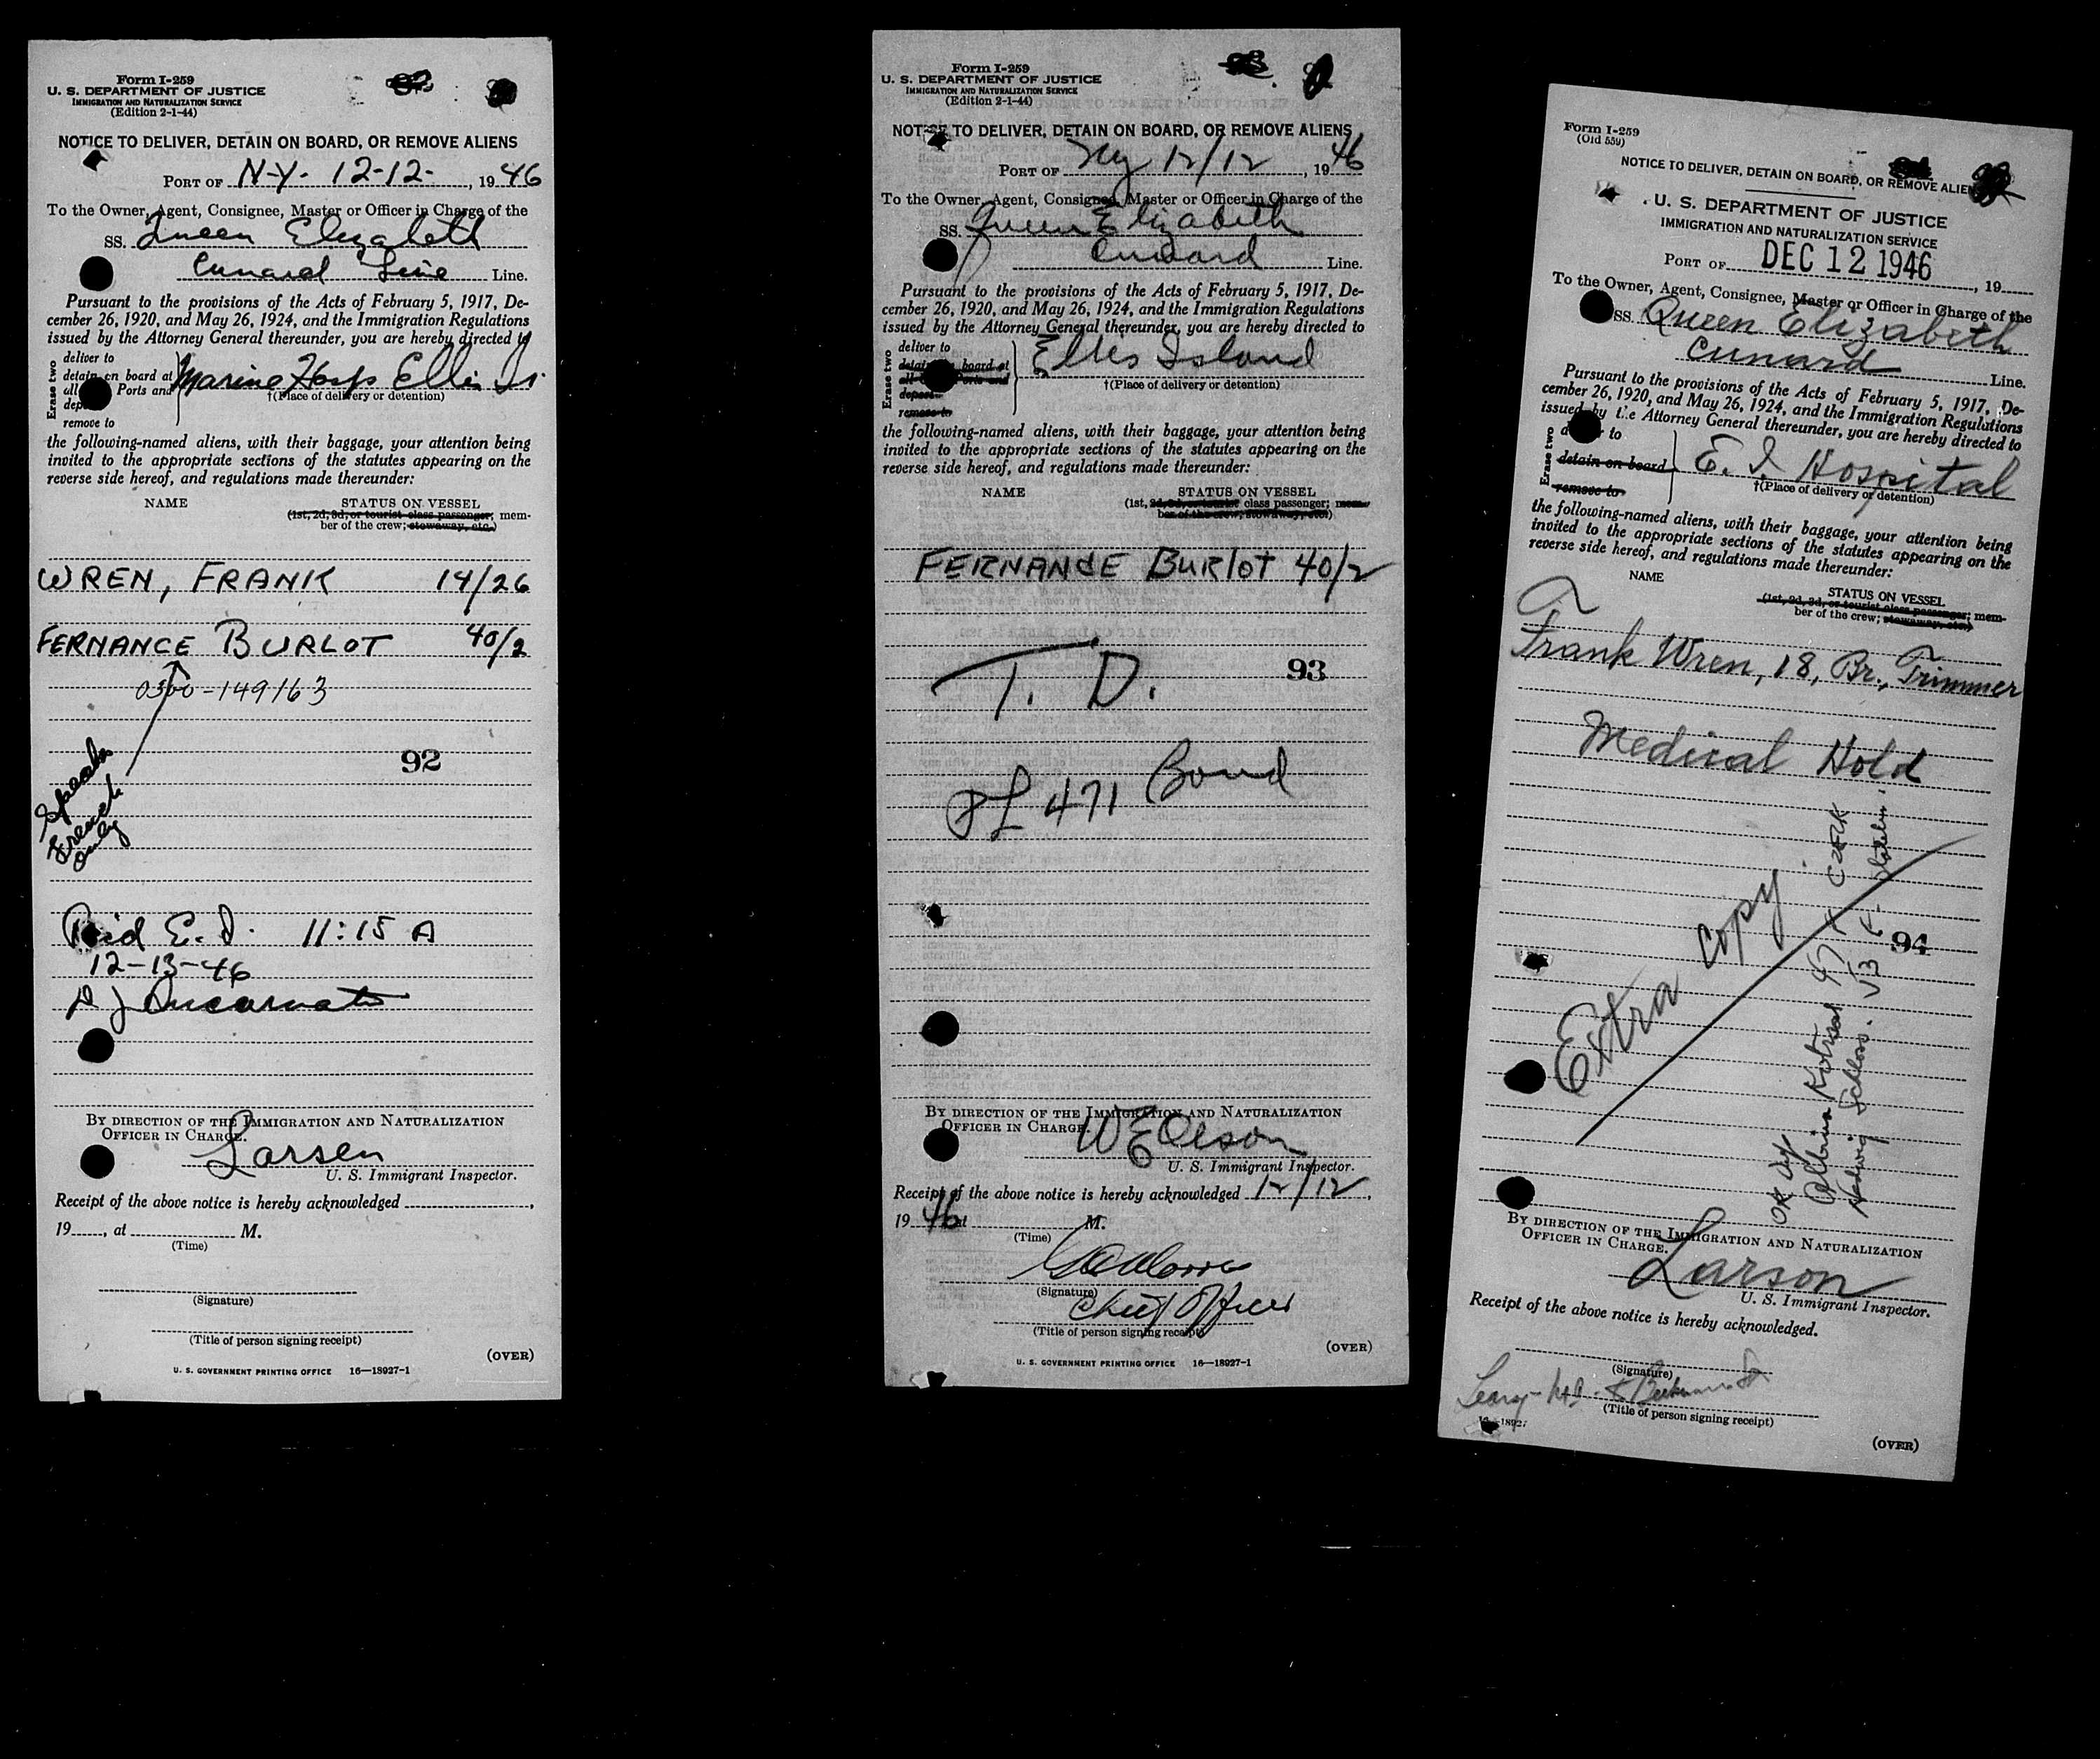 Form I-259
U. S. DEPARTMENT OF JUSTICE
IMMIGRATION AND NATURALIZATION SERVICE
(Edition 2-1-44)
NOTICE TO DELIVER, DETAIN ON BOARD, OR REMOVE ALIENS
PORT OF N-Y- 12-12-, 1946
To the Owner, Agent, Consignee, Master or Officer in Charge of the
SS. Queen Elizabeth
Cunard Line Line.
Pursuant to the provisions of the Acts of February 5, 1917, De-
cember 26, 1920, and May 26, 1924, and the Immigration Regulations
issued by the Attorney General thereunder, you are hereby directed to
Erase two
deliver to
detain on board at
all Ports and
remove to
Marine Hosp Ellis Is.
†(Place of delivery or detention)
the following-named aliens, with their baggage, your attention being
invited to the appropriate sections of the statutes appearing on the
reverse side hereof, and regulations made thereunder:
NAME STATUS ON VESSEL
(1st, 2d, 3d, or tourist class passenger; mem-
ber of the crew; stowaway, etc.)
WREN, FRANK 14/26
FERNANCE BURLOT 40/2
0300-149163
92
Speaks
French
only
E. I. 11:15 A
12-13-46
BY DIRECTION OF THE IMMIGRATION AND NATURALIZATION
OFFICER IN CHARGE.
Larsen
U. S. Immigrant Inspector.
Receipt of the above notice is hereby acknowledged
19, at M.
(Time)
(Signature)
(Title of person signing receipt)
(OVER)
U. S. GOVERNMENT PRINTING OFFICE 16—18927-1
Form I-259
U. S. DEPARTMENT OF JUSTICE
IMMIGRATION AND NATURALIZATION SERVICE
(Edition 2-1-44)
NOTICE TO DELIVER, DETAIN ON BOARD, OR REMOVE ALIENS
PORT OF NY 12/12, 1946
To the Owner, Agent, Consignee, Master or Officer in Charge of the
SS. Queen Elizabeth
Cunard Line.
Pursuant to the provisions of the Acts of February 5, 1917, De-
cember 26, 1920, and May 26, 1924, and the Immigration Regulations
issued by the Attorney General thereunder, you are hereby directed to
Erase two
deliver to
board at
Ports and
remove to
Ellis Island
†(Place of delivery or detention)
the following-named aliens, with their baggage, your attention being
invited to the appropriate sections of the statutes appearing on the
reverse side hereof, and regulations made thereunder:
NAME STATUS ON VESSEL
(1st, 2d, 3d, or tourist class passenger; mem-
ber of the crew, stowaway, etc.)
FERNANdE BURlOT 40/2
T. D. 93
PL 471 Bond
BY DIRECTION OF THE IMMIGRATION AND NATURALIZATION
OFFICER IN CHARGE.
W E Olson
U. S. Immigrant Inspector.
Receipt of the above notice is hereby acknowledged 12/12,
1946 at M.
(Time)
(Signature)
Chief Officer
(Title of person signing receipt)
(OVER)
U. S. GOVERNMENT PRINTING OFFICE 16—18927-1
Form I-259
(Old 559)
NOTICE TO DELIVER, DETAIN ON BOARD, OR REMOVE ALIENS
U. S. DEPARTMENT OF JUSTICE
IMMIGRATION AND NATURALIZATION SERVICE
PORT OF DEC 12 1946, 19
To the Owner, Agent, Consignee, Master or Officer in Charge of the
SS. Queen Elizabeth
Cunard Line.
Pursuant to the provisions of the Acts of February 5, 1917, De-
cember 26, 1920, and May 26, 1924, and the Immigration Regulations
issued by the Attorney General thereunder, you are hereby directed to
Erase two
to
detain on board
remove to
E. I Hospital
†(Place of delivery or detention)
the following-named aliens, with their baggage, your attention being
invited to the appropriate sections of the statutes appearing on the
reverse side hereof, and regulations made thereunder:
NAME
STATUS ON VESSEL
(1st, 2d, 3d, or tourist class passenger; mem-
ber of the crew; stowaway, etc.)
Frank Wren, 18, Br., Trimmer
Medical Hold
Extra Copy
94
BY DIRECTION OF THE IMMIGRATION AND NATURALIZATION
OFFICER IN CHARGE.
Larson
U. S. Immigrant Inspector.
Receipt of the above notice is hereby acknowledged.
(Signature)
(Title of person signing receipt)
(OVER)